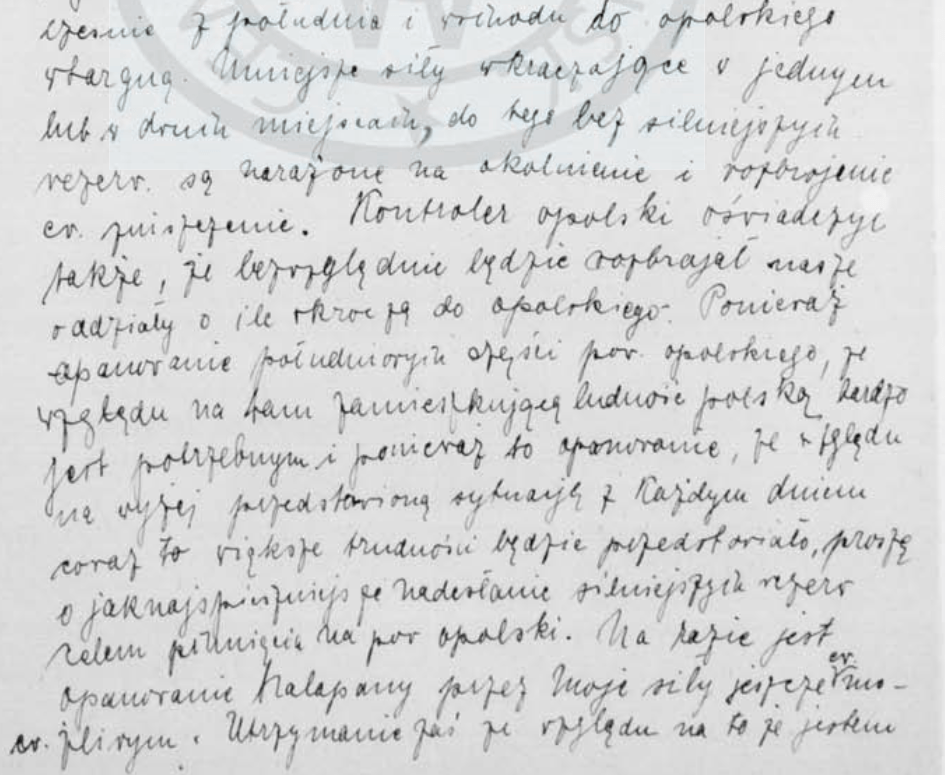 cześnie z południa i wschodu do opolskiego
wtargną. Mniejsze siły wkraczające w jednym
lub w dwuch miejscach, do tego bez silniejszych
rezerw. są narażone na okolnienie i rozbrojenie
ev. zniszczenie. Kontroler opolski oświadczył
także, że bezwzględnie będzie rozbrajał nasze
oddziały o ile wkroczą do opolskiego. Ponieważ
opanowanie południowych części pow. opolskiego, ze
względu na tam zamieszkującą ludność polską bardzo
jest potrzebnym i ponieważ to opanowanie, ze względu
na wyżej przedstawioną sytuację z każdym dniem
coraz to większe trudności będzie przedstawiało, proszę
o jaknajspieszniejsze nadesłanie silniejszych rezerw
celem pchnięcia na pow opolski. Na razie jest
opanowanie Malapany przez moje siły jeszcze ev. mo-
ev. żliwym. Utrzymanie zaś ze względu na to że jestem